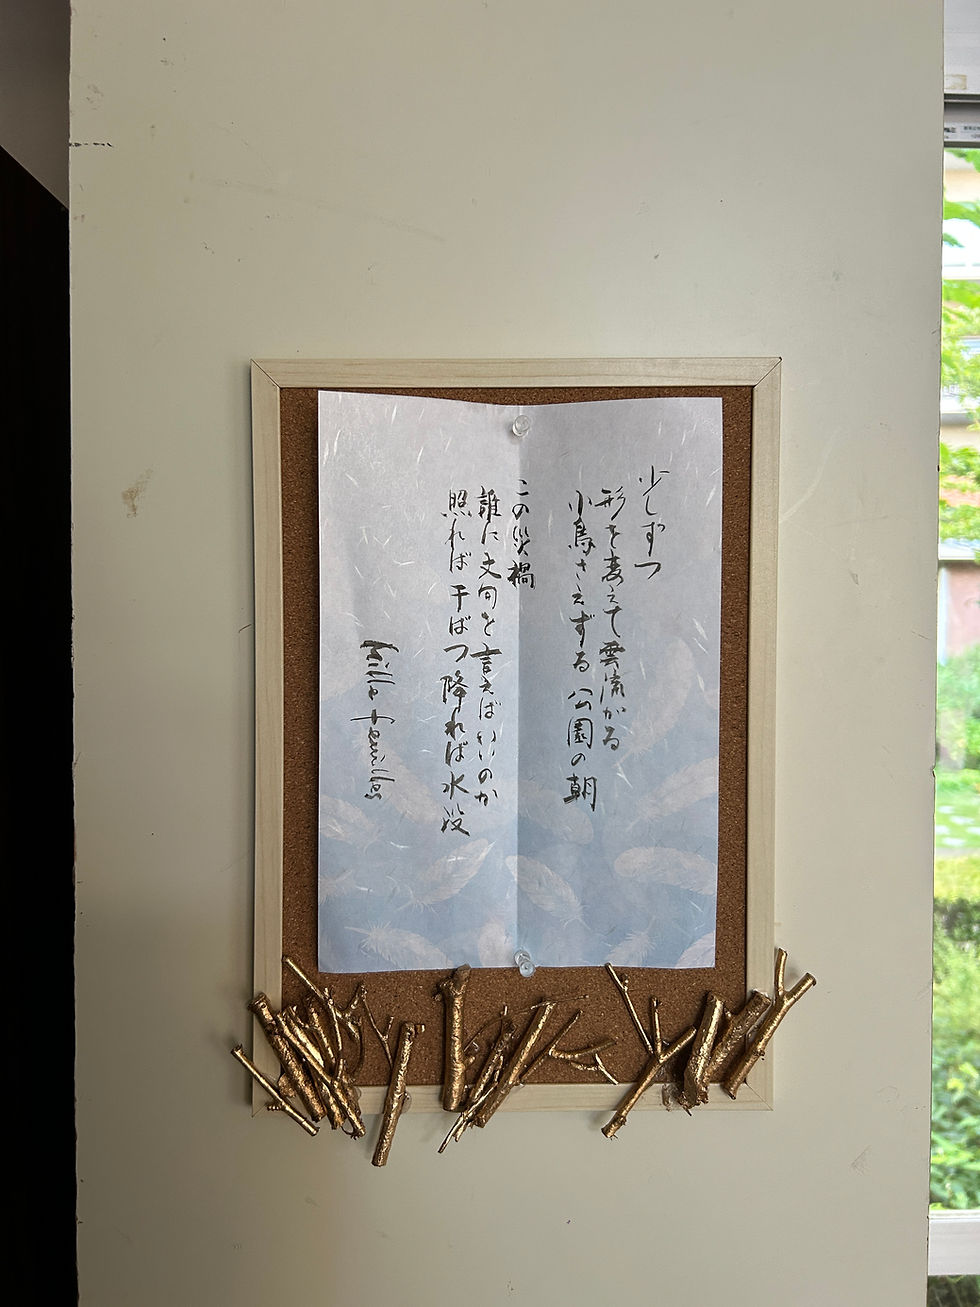 少しずつ
形を変えて雲流がる
小鳥さえずる公園の朝
この災禍
誰に文句を言えばいいのか
照れば干ばつ降れば水没